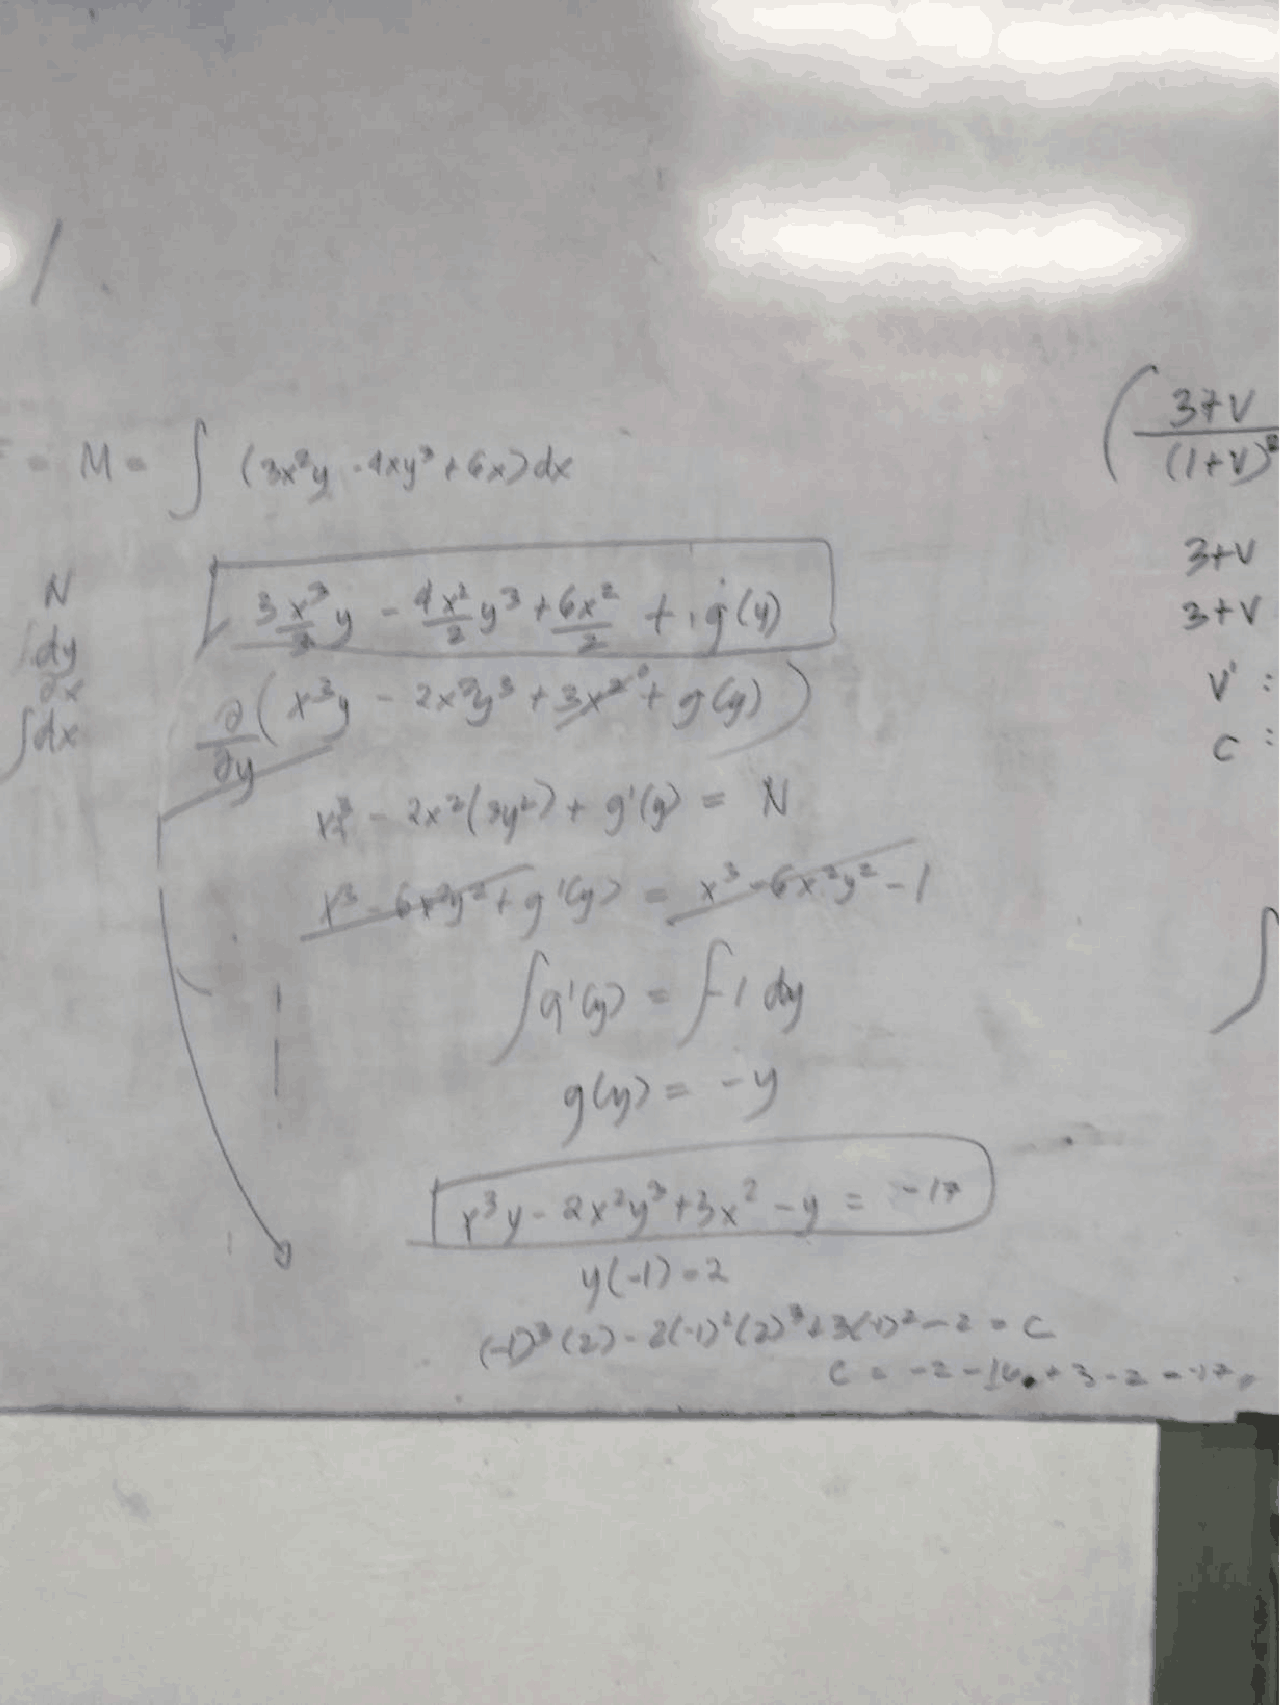 = M = ∫ (3x²y - 4xy³ + 6x) dx
3x³/3 y - 4x²/2 y³ + 6x²/2 + g(y)
∂/∂y ( x³y - 2x²y³ + 3x² + g(y) )
x³ - 2x²(3y²) + g'(y) = N
x³ - 6x²y² + g'(y) = x³ - 6x²y² - 1
∫ g'(y) = ∫ -1 dy
g(y) = -y
x³y - 2x²y³ + 3x² - y = -17
y(-1) = 2
(-1)³(2) - 2(-1)²(2)³ + 3(-1)² - 2 = C
C = -2 - 16 + 3 - 2 = -17
N
∫dy
∂x
∫dx
( 3+V
(1+V)²
3+V
3+V
V² :
C :
∫